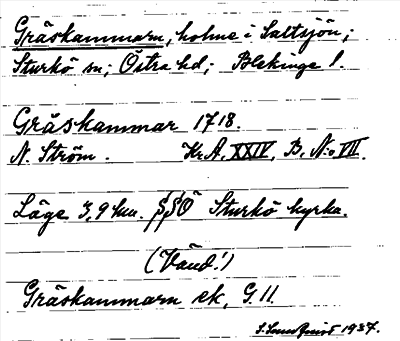 Gräskammarn, holme i Saltsjön;
Sturkö sn; Östra hd; Blekinge l.
Gräskammar 1718.
N. Ström. Kr.A. XXIV, B. N:o VII.
Läge 3,9 km. SSÖ Sturkö kyrka.
(Vänd!)
Gräskammarn ek. G. 11.
1937.